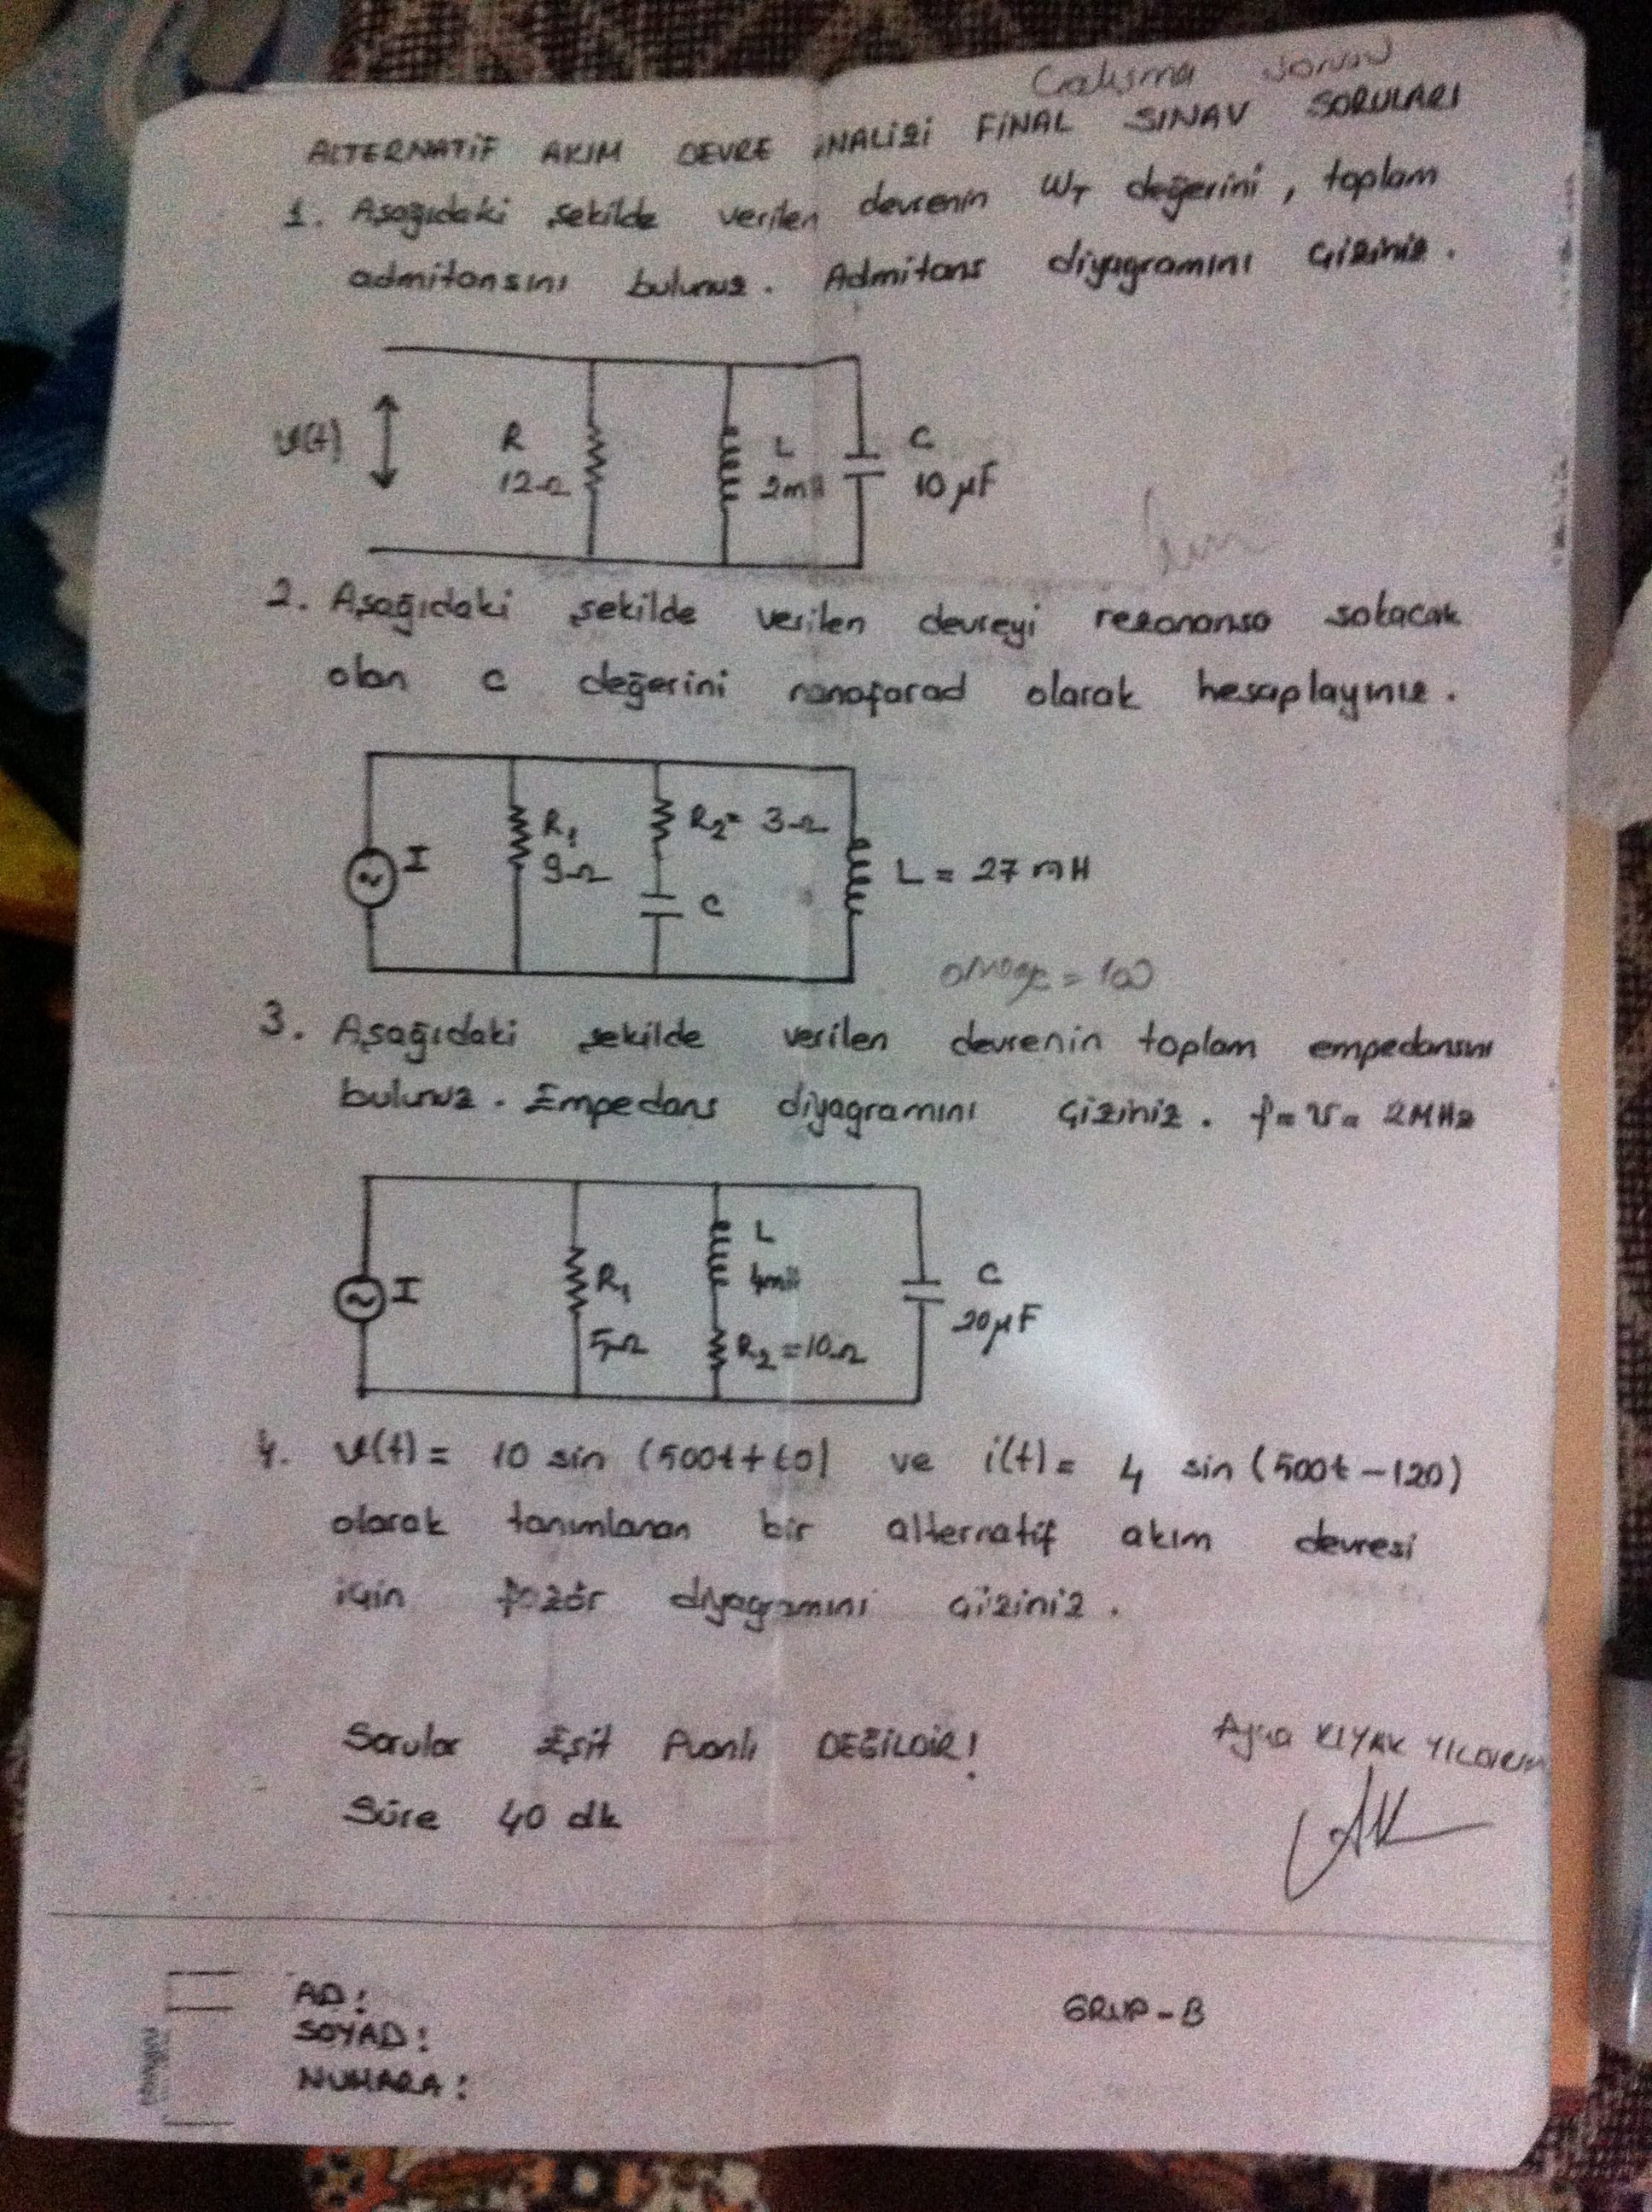 Çalışma sorusu
ALTERNATİF AKIM DEVRE ANALİZİ FİNAL SINAV SORULARI
1. Aşağıdaki şekilde verilen devrenin Wr değerini, toplam
admitansını bulunuz. Admitans diyagramını çiziniz.
v(t)
R
12Ω
L
2mH
C
10 μF
2. Aşağıdaki şekilde verilen devreyi rezonansa sokacak
olan c değerini nanofarad olarak hesaplayınız.
I
R1
9Ω
R2= 3Ω
C
L = 27 mH
omega = 100
3. Aşağıdaki şekilde verilen devrenin toplam empedansını
bulunuz. Empedans diyagramını çiziniz. f= v= 2MHz
I
R1
5Ω
L
4mH
R2=10Ω
C
20μF
4. v(t)= 10 sin (500t+60) ve i(t)= 4 sin(500t-120)
olarak tanımlanan bir alternatif akım devresi
için fazör diyagramını çiziniz.
Sorular Eşit Puanlı DEĞİLDİR!
KIYAK YILDIRIM
Süre 40 dk
AD:
SOYAD:
NUMARA:
GRUP-B